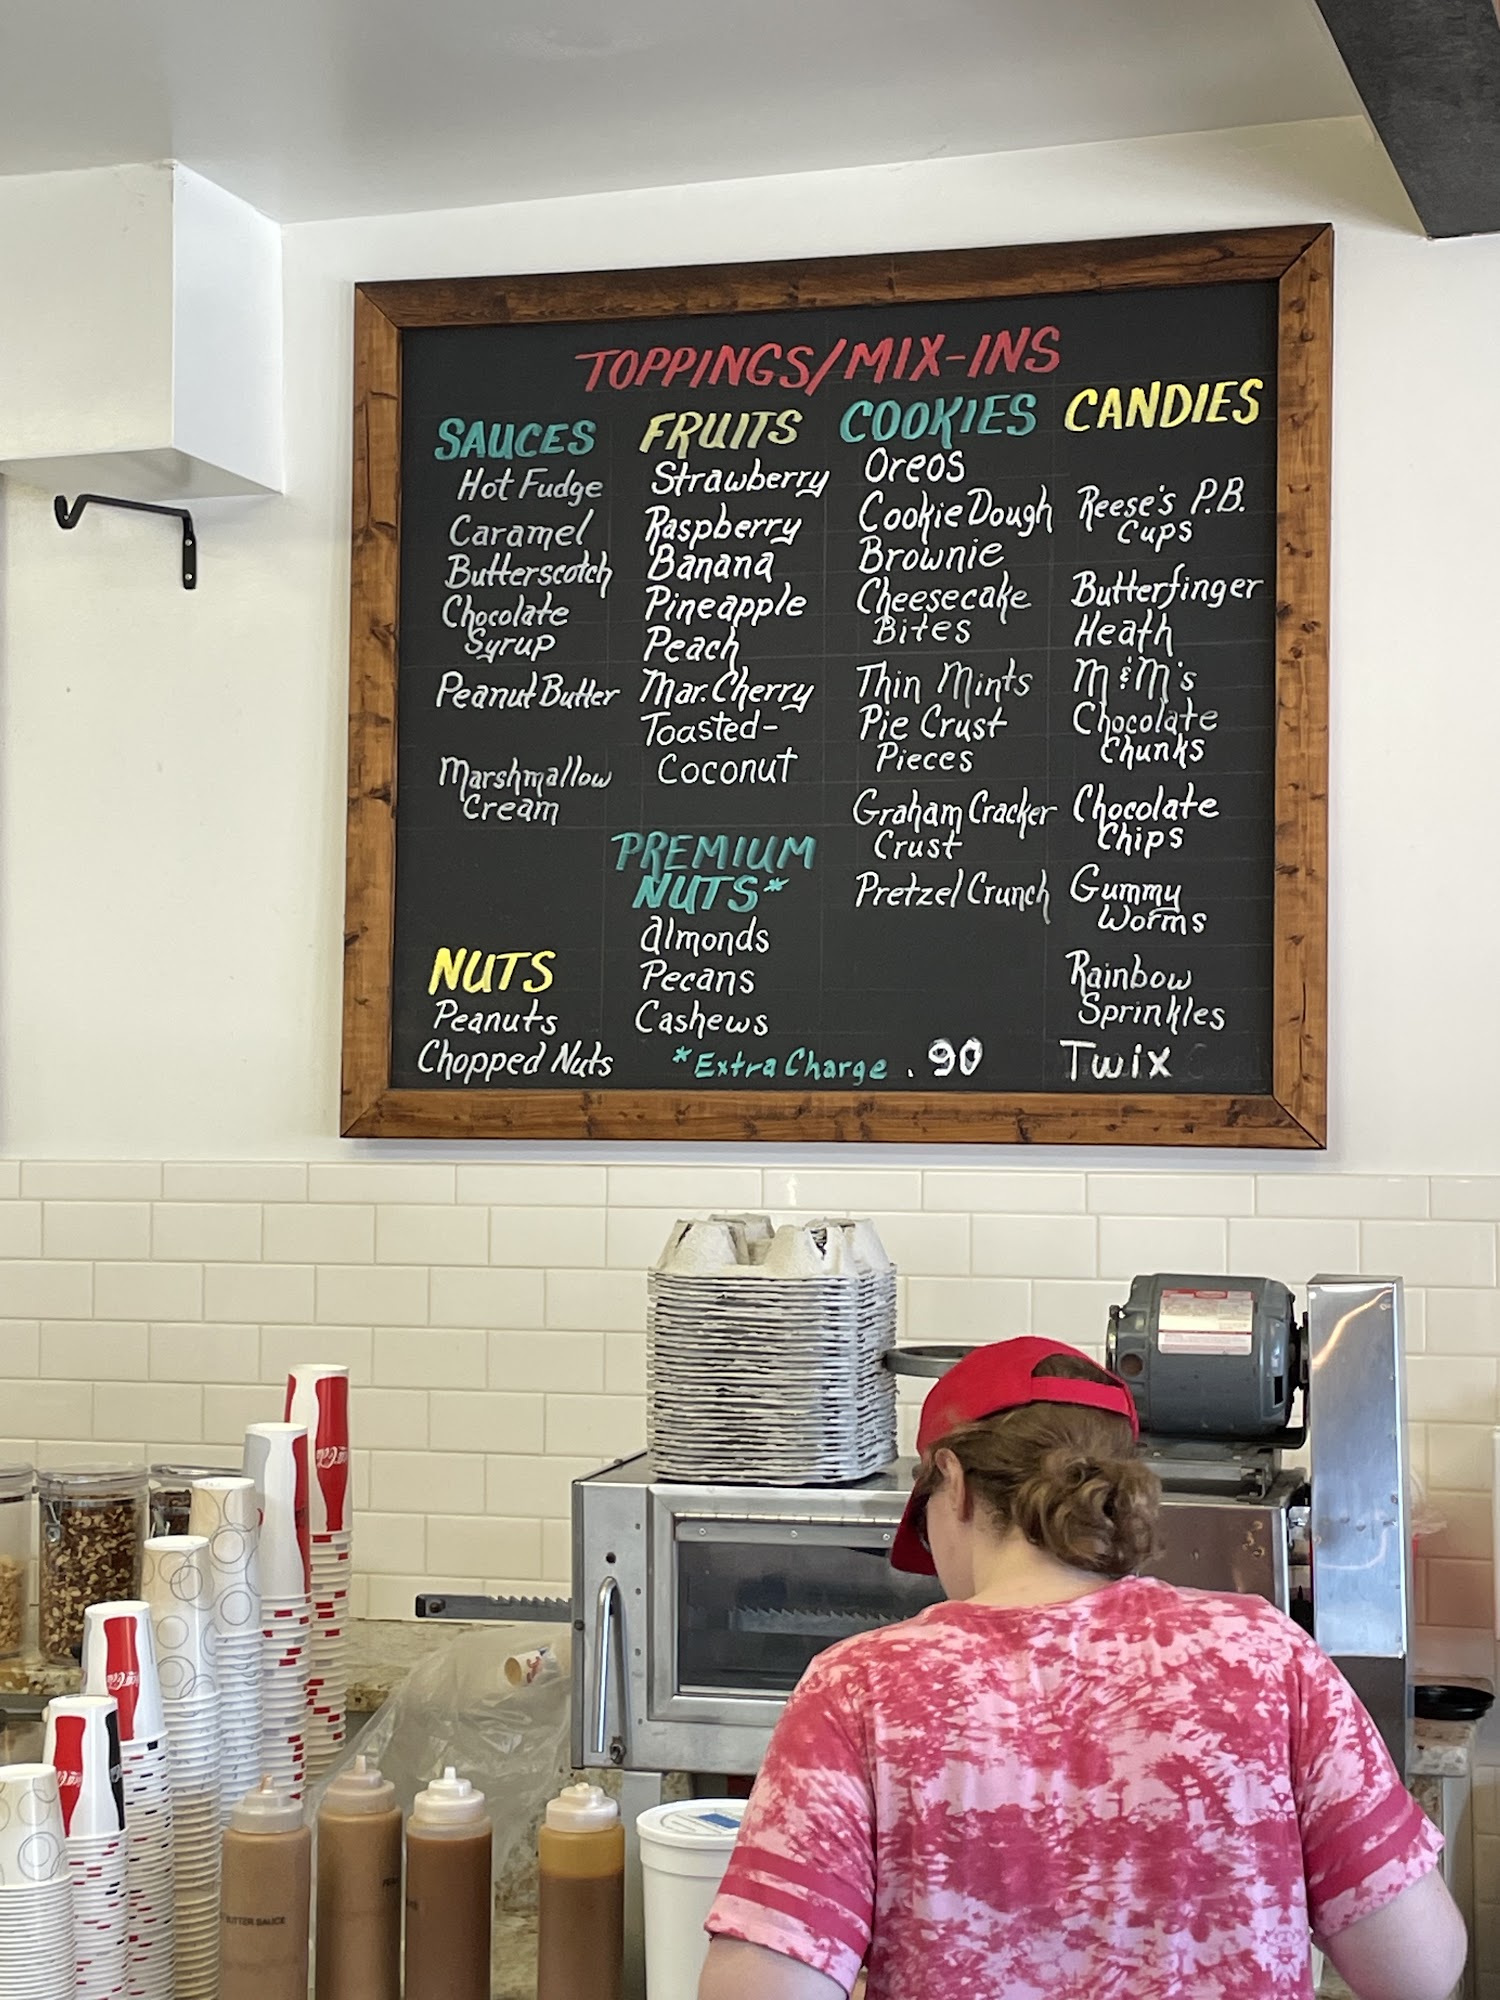 TOPPINGS/MIX-INS
SAUCES
Hot Fudge
Caramel
Butterscotch
Chocolate
Syrup
Peanut Butter
Marshmallow
Cream
NUTS
Peanuts
Chopped Nuts
FRUITS
Strawberry
Raspberry
Banana
Pineapple
Peach
Mar. Cherry
Toasted-
Coconut
PREMIUM
NUTS*
Almonds
Pecans
Cashews
*Extra Charge .90
COOKIES
Oreos
Cookie Dough
Brownie
Cheesecake
Bites
Thin Mints
Pie Crust
Pieces
Graham Cracker
Crust
Pretzel Crunch
CANDIES
Reese's P.B.
Cups
Butterfinger
Heath
M&M's
Chocolate
Chunks
Chocolate
Chips
Gummy
Worms
Rainbow
Sprinkles
Twix
Coca-Cola
UTTER SAUCE